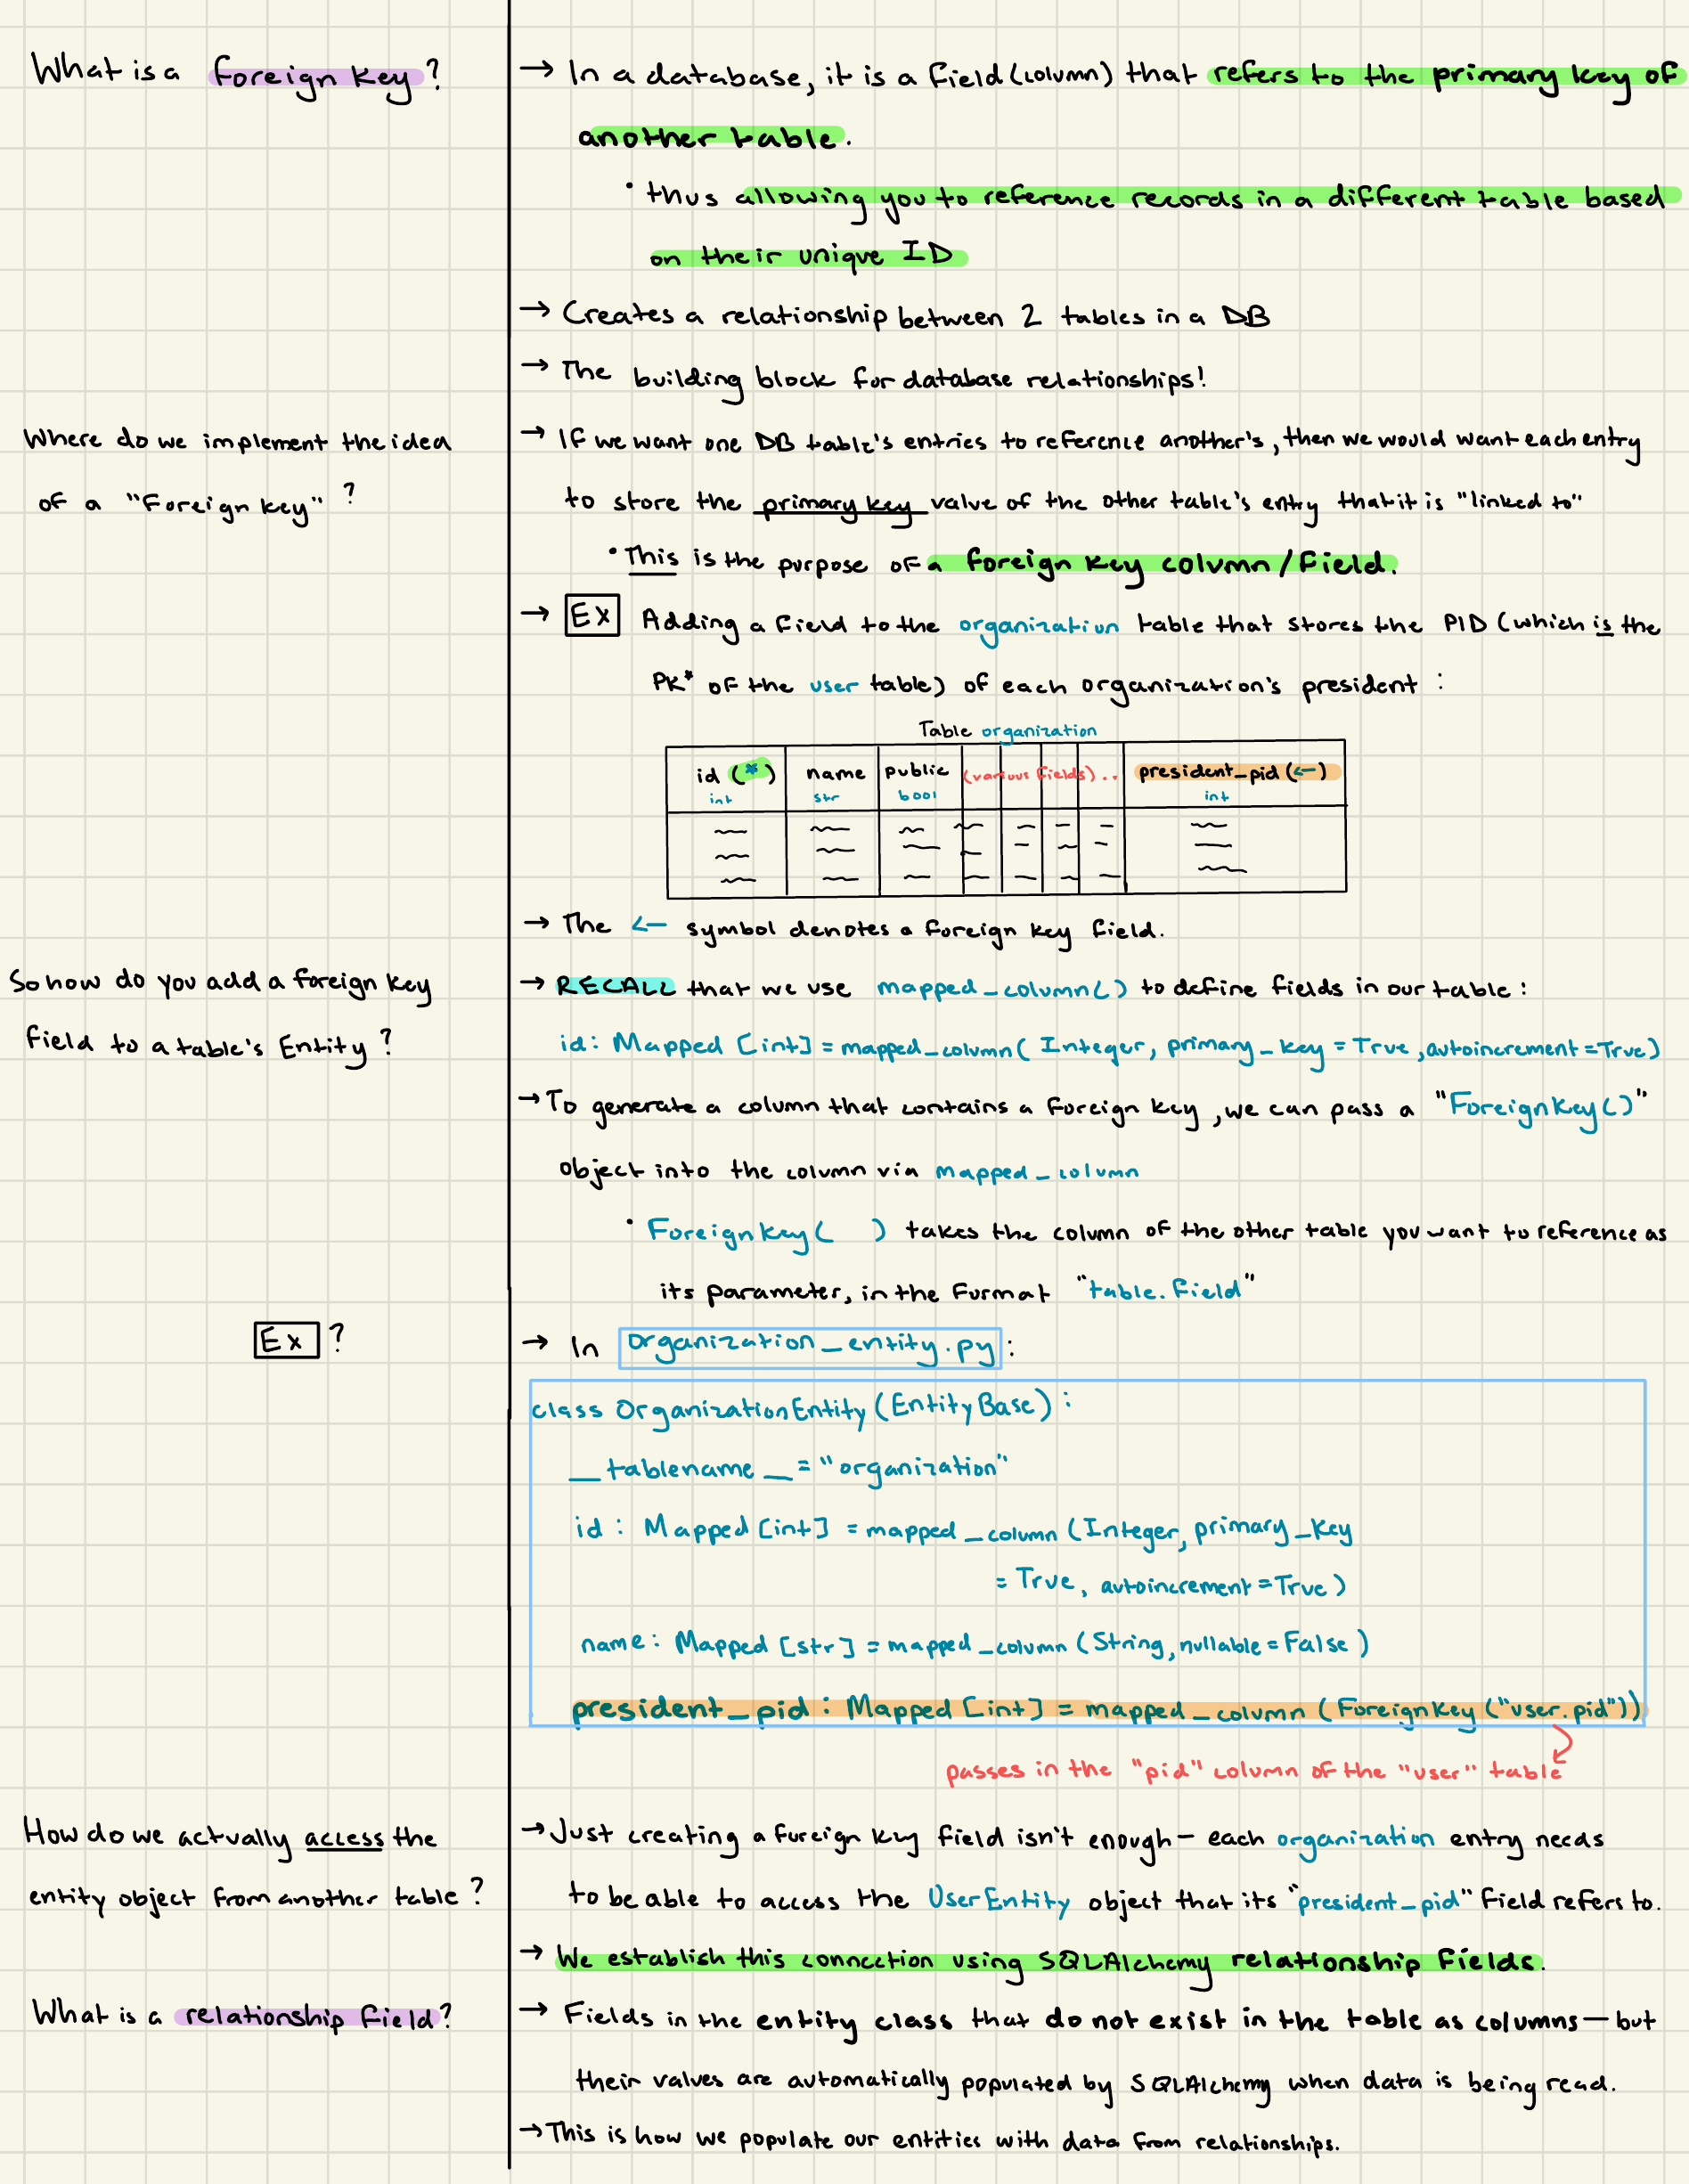 What is a foreign key?
→ In a database, it is a field (column) that refers to the primary key of
another table.
• thus allowing you to reference records in a different table based
on their unique ID
→ Creates a relationship between 2 tables in a DB
→ The building block for database relationships!
Where do we implement the idea
of a "Foreign key"?
→ If we want one DB table's entries to reference another's, then we would want each entry
to store the primary key value of the other table's entry that it is "linked to"
• This is the purpose of a foreign key column/field.
→ Ex Adding a field to the organization table that stores the PID (which is the
PK* of the user table) of each organization's president:
Table organization
id (*) name public (various fields).. president_pid (←)
int str bool int
→ The ← symbol denotes a foreign key field.
So how do you add a foreign key
field to a table's Entity?
→ RECALL that we use mapped_column() to define fields in our table:
id: Mapped [int] = mapped_column( Integer, primary_key = True, autoincrement = True)
→ To generate a column that contains a foreign key, we can pass a "ForeignKey()"
object into the column via mapped_column
• ForeignKey( ) takes the column of the other table you want to reference as
its parameter, in the format "table.field"
Ex ?
→ In organization_entity.py:
class OrganizationEntity (EntityBase):
__tablename__ = "organization"
id: Mapped [int] = mapped_column (Integer, primary_key
= True, autoincrement = True)
name: Mapped [str] = mapped_column (String, nullable = False)
president_pid: Mapped [int] = mapped_column (ForeignKey ("user.pid"))
passes in the "pid" column of the "user" table
How do we actually access the
entity object from another table?
→ Just creating a foreign key field isn't enough — each organization entry needs
to be able to access the UserEntity object that its "president_pid" field refers to.
→ We establish this connection using SQLAlchemy relationship fields.
What is a relationship field?
→ Fields in the entity class that do not exist in the table as columns — but
their values are automatically populated by SQLAlchemy when data is being read.
→ This is how we populate our entities with data from relationships.